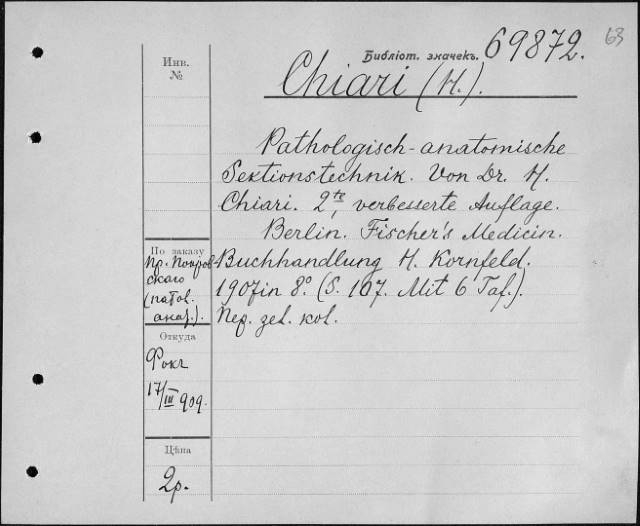 63
Библіот. значекъ. 69872.
Chiari (H.).
Инв.
№
Pathologisch-anatomische
Sektionstechnik. Von Dr. H.
Chiari. 2te, verbesserte Auflage.
Berlin. Fischer's Medicin.
Buchhandlung H. Kornfeld.
1907 in 8º. (S. 107. Mit 6 Taf.).
Пер. зел. кол.
По заказу
Пр. Покров-
скаго
(патол.
анат.).
Откуда
Фокъ
17/III 909.
Цѣна
2р.